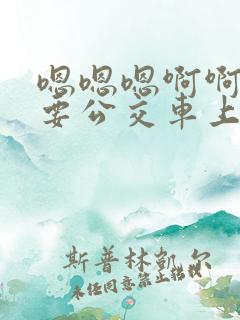 嗯嗯嗯啊啊
要公交車上
斯普林凯尔
未经同意禁止转载